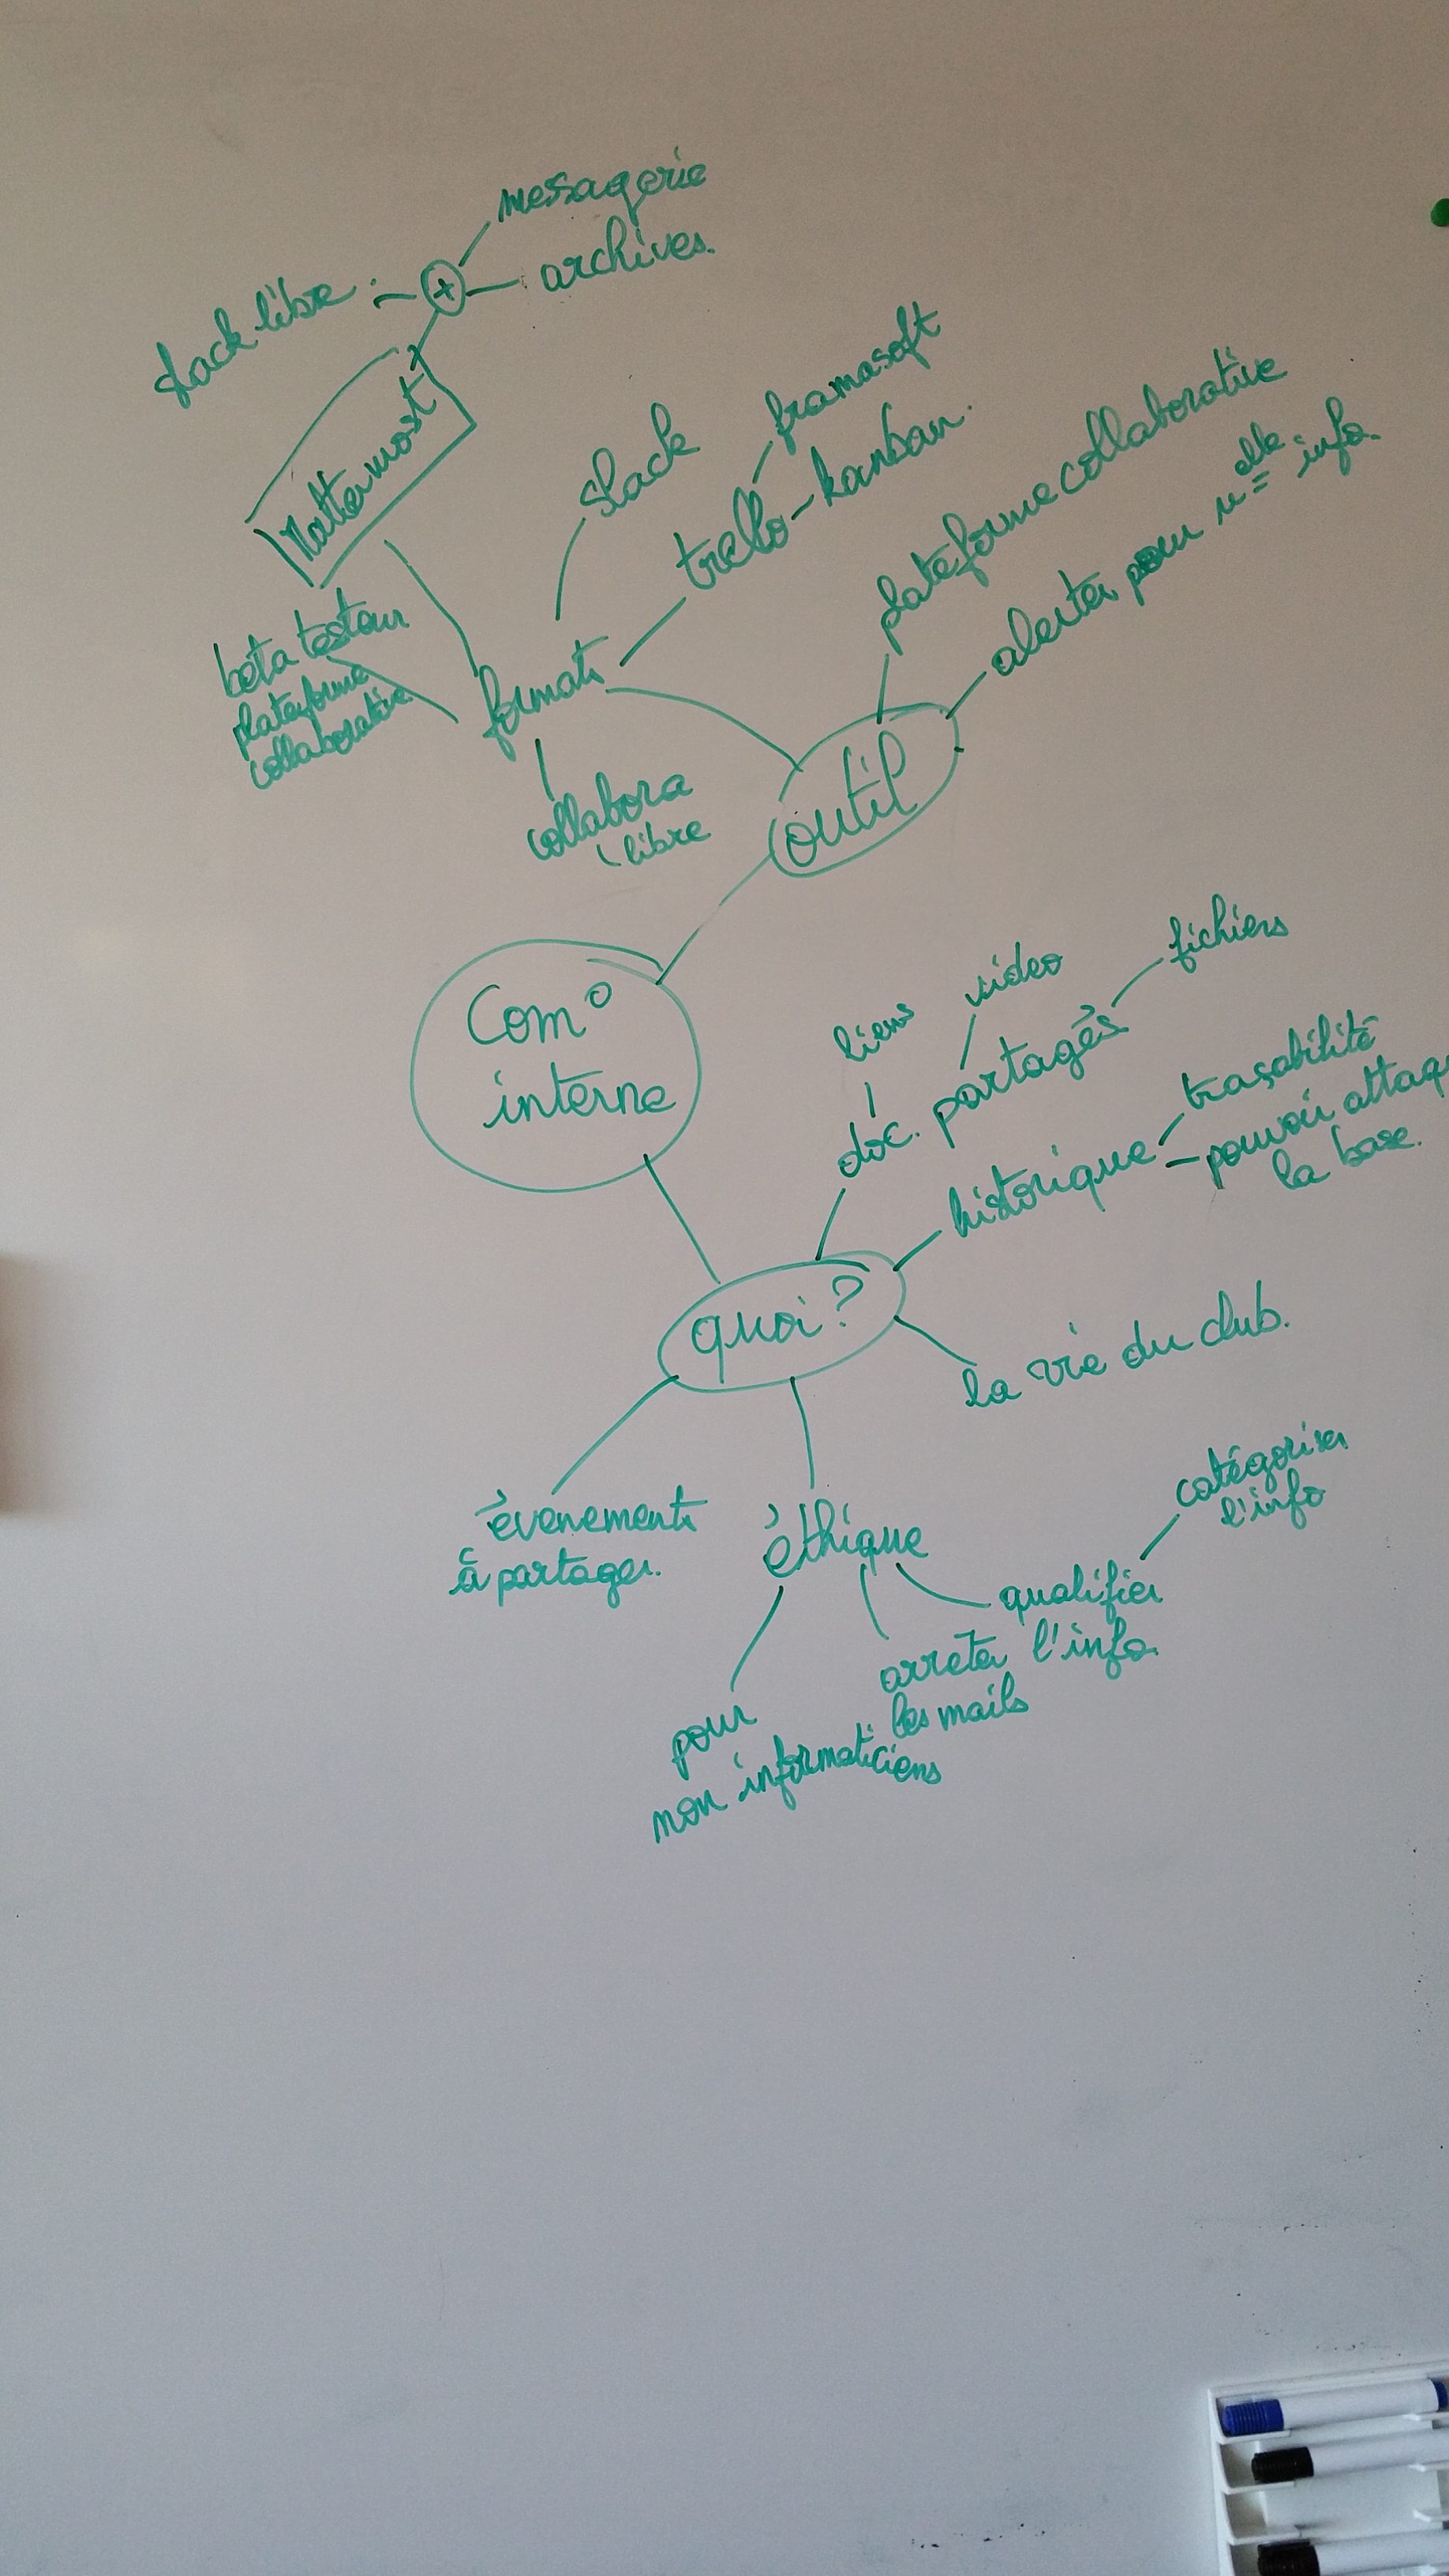 messagerie
archives.
slack libre
+
Mattermost
slack
framasoft
trello - kanban.
plateforme collaborative
alerter pour u = elle info.
beta testeur
plateforme
collaborative
formats
collabora
libre
outil
Com°
interne
liens
video
fichiers
doc. partagés
historique
traçabilité
pouvoir attaqu
la base.
quoi ?
la vie du club.
évenements
à partager.
éthique
catégoriser
l'info
qualifier
l'info.
arreter
les mails
pour
non informaticiens